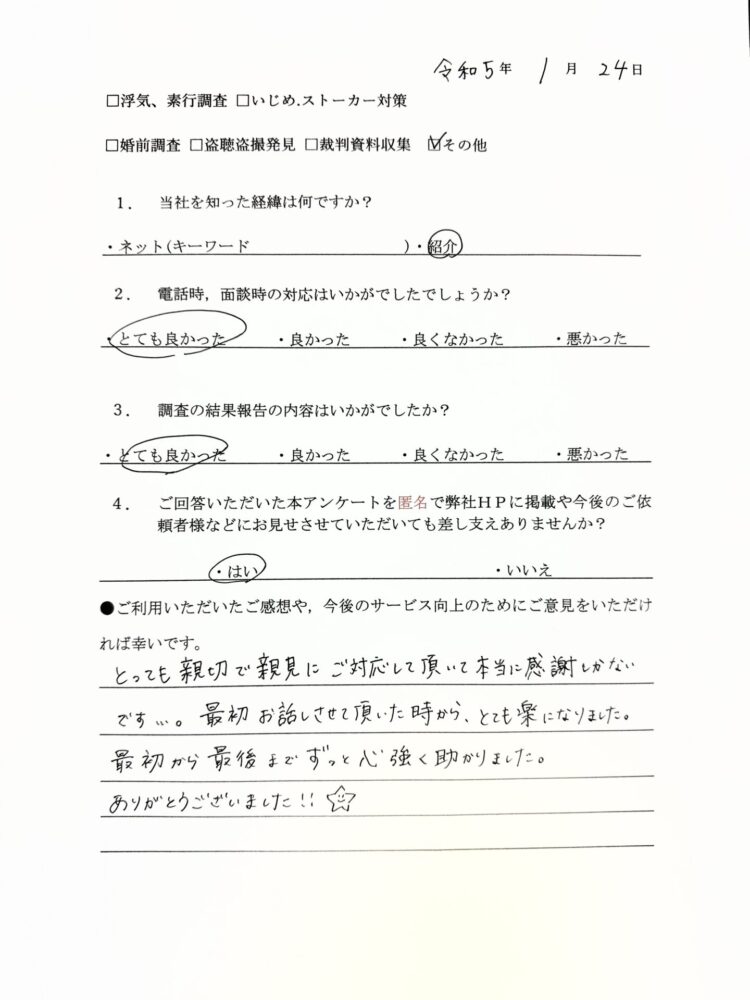 令和5年 1月 24日
□浮気、素行調査 □いじめ.ストーカー対策
□婚前調査 □盗聴盗撮発見 □裁判資料収集 ☑その他
1. 当社を知った経緯は何ですか？
・ネット(キーワード )・紹介
2. 電話時，面談時の対応はいかがでしたでしょうか？
・とても良かった ・良かった ・良くなかった ・悪かった
3. 調査の結果報告の内容はいかがでしたか？
・とても良かった ・良かった ・良くなかった ・悪かった
4. ご回答いただいた本アンケートを匿名で弊社ＨＰに掲載や今後のご依
頼者様などにお見せさせていただいても差し支えありませんか？
・はい ・いいえ
●ご利用いただいたご感想や，今後のサービス向上のためにご意見をいただけ
れば幸いです。
とっても親切で親見にご対応して頂いて本当に感謝しかない
です…。最初お話しさせて頂いた時から、とても楽になりました。
最初から最後までずっと心強く助かりました。
ありがとうございました!!